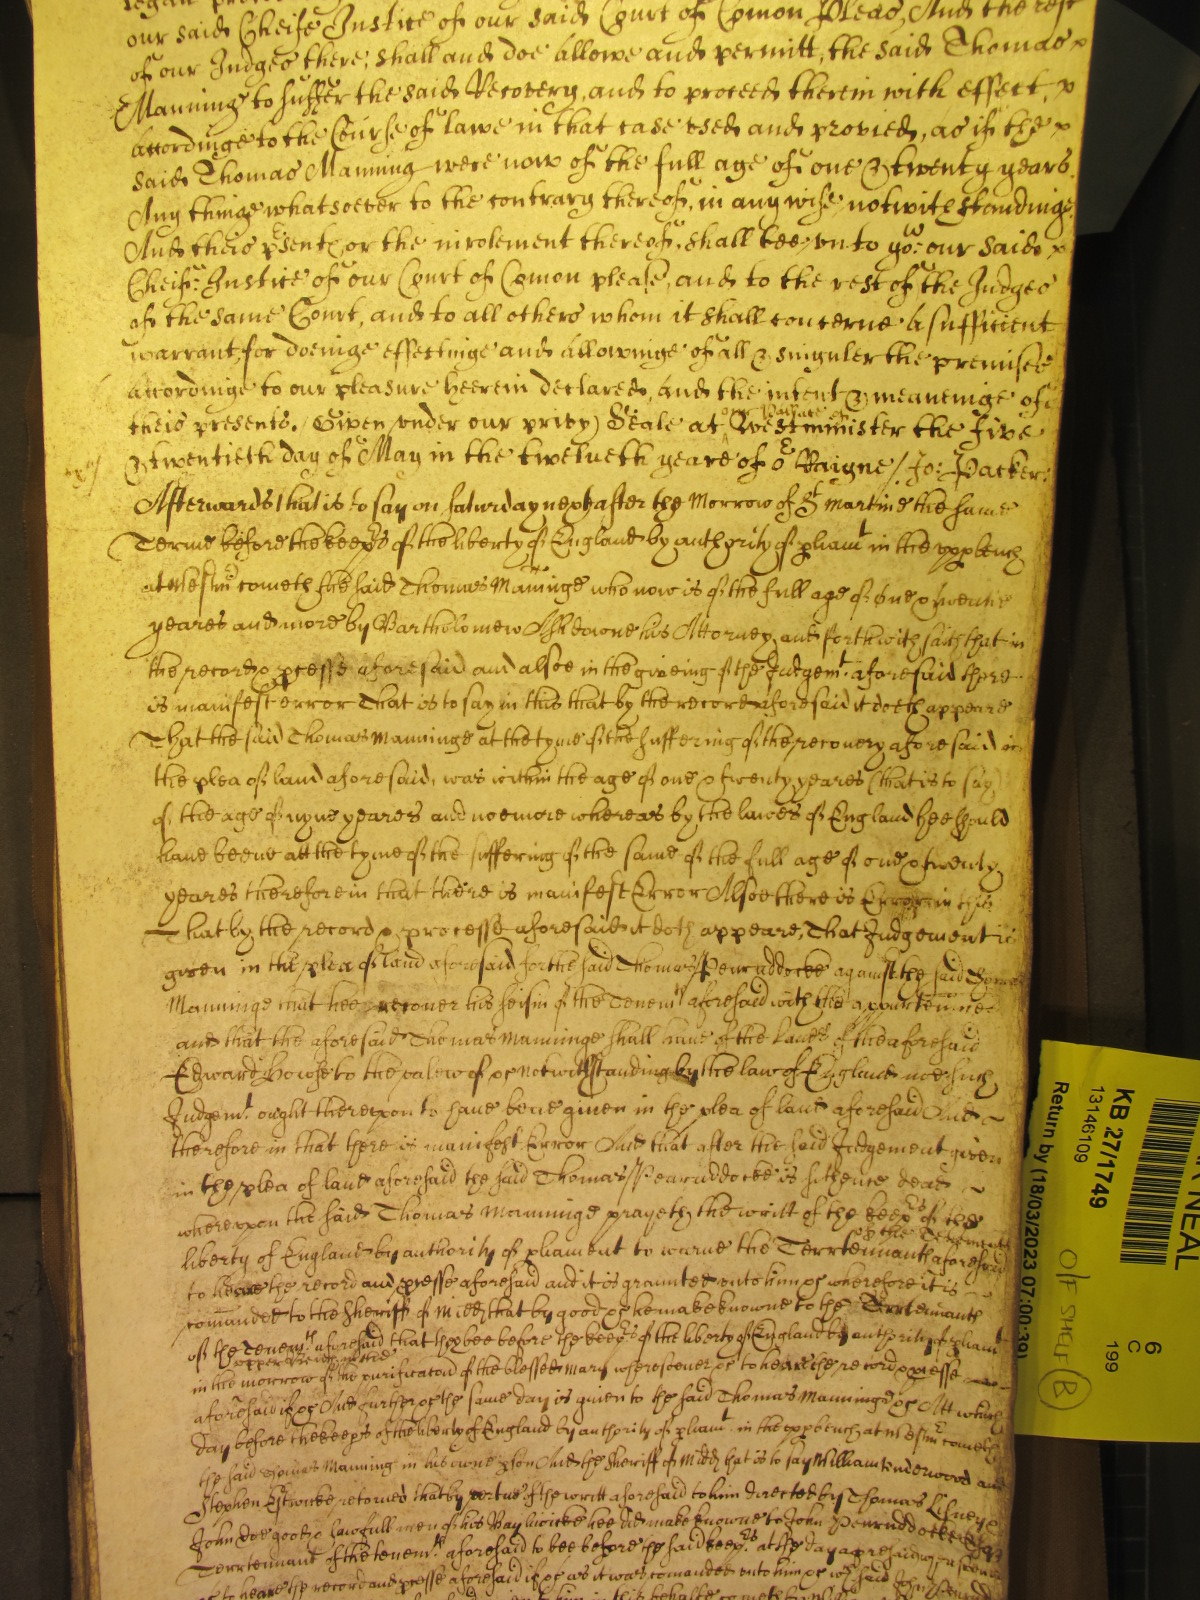 our said Cheife Justice of our said Court of Comon Pleas, And the rest
of our Judges there, shall and doe allowe and permitt, the said Thomas
Manning to suffer the said Recovery, and to proceed therein with effect,
accordinge to the Course of lawe in that case used and provied, as if the
said Thomas Manning were now of the full age of one & twenty years.
Any thinge whatsoever to the contrary thereof, in any wise notwithstandinge.
And theis psents, or the inrolement thereof, shall bee, vnto yow: our said
Cheife: Justice of our Court of Comon please, and to the rest of the Judges
of the same Court, and to all others whom it shall concerne a sufficient
warrant, for doeinge effectinge and allowinge of all & singuler the premises
accordinge to our pleasure heerein declared, and the intent & meaneinge of
theis presents. Given vnder our privy Seale at our Pallace of Westminister the five
& twentieth day of May in the twelueth yeare of or Raigne / Jo: Packer:
Afterwards that is to say on Saturday next after the Morrow of St Martin the same
Terme before the keeps of the liberty of England by authority of pliamt in the uppbench
at Westmr cometh the said Thomas Manninge who now is of the full age of one & twentie
yeares and more by Bartholomew his Attorney and forthwith saith that in
the record & pcesse aforesaid and alsoe in the giveing of the Judgemt aforesaid there
is manifest error That is to say in this that by the record aforesaid it doeth appeare
That the said Thomas Manninge at the tyme of the suffering of the recovery aforesaid in
the plea of land aforesaid, was within the age of one & twenty yeares (that is to say)
of the age of nyne yeares and noe more whereas by the lawes of England hee should
have beene att the tyme of the suffering of the same of the full age of one & twenty
yeares therefore in that there is manifest Error Alsoe there is Error in this
That by the record & processe aforesaid it doth appeare, That Judgement is
given in the plea of land aforesaid for the said Thomas Penruddocke against the said Thomas
Manninge that hee recover his seisin of the Tenemts aforesaid with the appurtennces
and that the aforesaid Thomas Manninge shall have of the land of the aforesaid
Edward Howse to the valew &c Notwithstanding by the law of England noe such
Judgemt ought thereupon to have bene given in the plea of land aforesaid And
therefore in that there is manifest Error And that after the said Judgement given
in the plea of land aforesaid the said Thomas Penruddocke is sithence dead
whereupon the said Thomas Manninge prayeth the writt of the keeps of the
liberty of England by authority of pliament to warne the Terrtennants of the Tenements aforesaid
to heare the record and pcesse aforesaid and it is graunted unto him &c wherefore it is
comanded to the Sheriff of Midd that by good &c he make knowne to the Terrtennants
of the Tenemts aforesaid that they bee before the keeps of the liberty of England by authority of pliamt
in the upper Bench on the morrow of the purificacon of the blessed Mary wheresoever &c to heare the record & pcesse
aforesaid if &c And further &c the same day is given to the said Thomas Manninge &c Att which
day before the keeps of the liberty of England by authority of pliamt in the uppbench at Westmr cometh
the said Thomas Manning in his owne pson And the Sheriff of Midd that is to say William Underwood and
Stephen Estwicke, retorned that by vertue of the writt aforesaid to him directed by Thomas Lisney &
John Doe good & lawfull men of his Baylwicke hee did make knowne to John Penruddocke
Terrtennant of the tenemts aforesaid to bee before the said keeps at the day aforesaid
to heare the record and pcesse aforesaid if &c as it was comanded unto him &c
KB 27/1749
13146109
Return by (18/03/2023 07:00:39)
O/F SHELF B
6
C
199